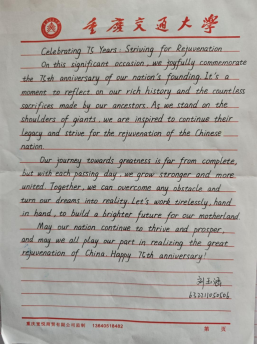 重庆交通大学
Celebrating 75 Years: Striving for Rejuvenation
On this significant occasion, we joyfully commemorate
the 75th anniversary of our nation's founding. It's a
moment to reflect on our rich history and the countless
sacrifices made by our ancestors. As we stand on the
shoulders of giants, we are inspired to continue their
legacy and strive for the rejuvenation of the Chinese
nation.
Our journey towards greatness is far from complete,
but with each passing day, we grow stronger and more
united. Together, we can overcome any obstacle and
turn our dreams into reality. Let's work tirelessly, hand
in hand, to build a brighter future for our motherland.
May our nation continue to thrive and prosper,
and may we all play our part in realizing the great
rejuvenation of China. Happy 75th anniversary!